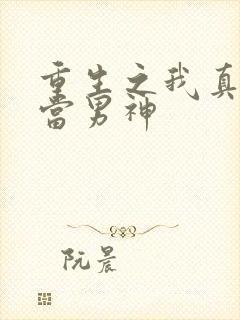 重生之我真
當男神
阮晨